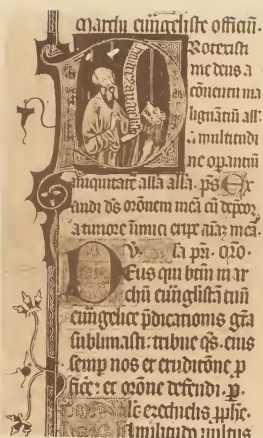 Marchi euãgeliste officiũ.
Protexisti
me deus a
cõuentu ma
lignãtiũ all'.
a multitudi
ne operantiũ
iniquitatẽ alla alla. ps Ex
audi ds orõnem meã cũ depcor
a timore inimici eripe aĩaz meã.
la pri. orõ.
Deus qui btm mar
chũ euãglistã tuũ
euãgelice p̃dicationis grã
sublimasti: tribue qs. eius
semp nos et eruditõne p
ficere et orõne defendi. p.
ezechielis pphe.